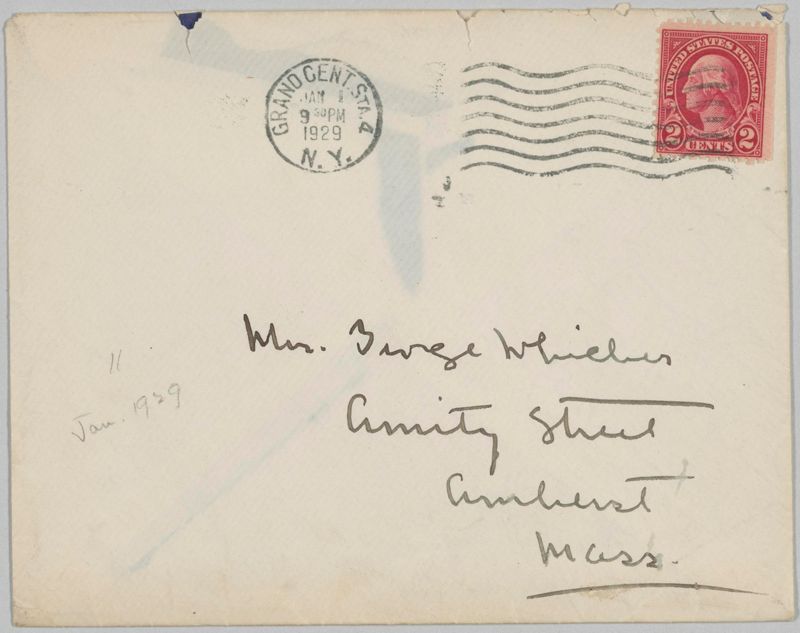 GRAND CENT. STA. 4
JAN 1
9 30 PM
1929
N. Y.
UNITED STATES POSTAGE
2 CENTS 2
Mrs. George Whicher
Amity Street
Amherst
Mass.
11
Jan. 1929